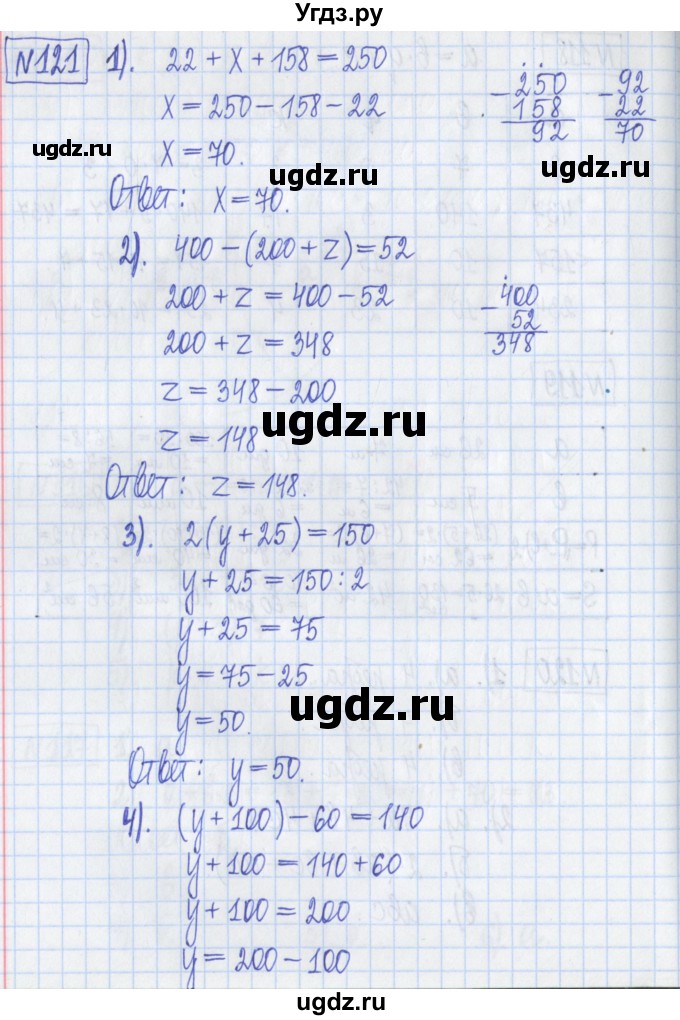 Угдз.ру
№121 1). 22 + x + 158 = 250
x = 250 - 158 - 22
x = 70.
Ответ: x = 70.
- 250
158
92
- 92
22
70
ugdz.ru
ugdz.ru
2). 400 - (200 + z) = 52
200 + z = 400 - 52
200 + z = 348
z = 348 - 200
z = 148
Ответ: z = 148.
- 400
52
348
ugdz.ru
3). 2(y + 25) = 150
y + 25 = 150 : 2
y + 25 = 75
y = 75 - 25
y = 50.
Ответ: y = 50.
ugdz.ru
4). (y + 100) - 60 = 140
y + 100 = 140 + 60
y + 100 = 200
y = 200 - 100
ugdz.ru